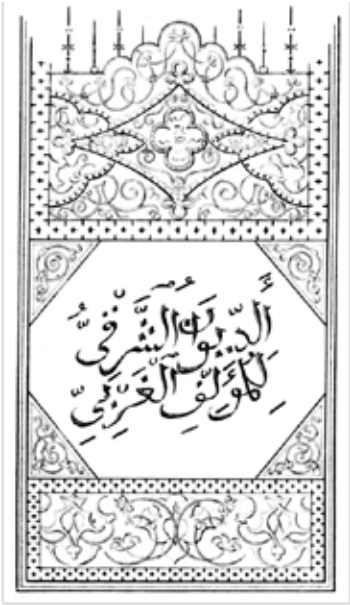 ألديوان الشرقي
للمؤلف الغربي